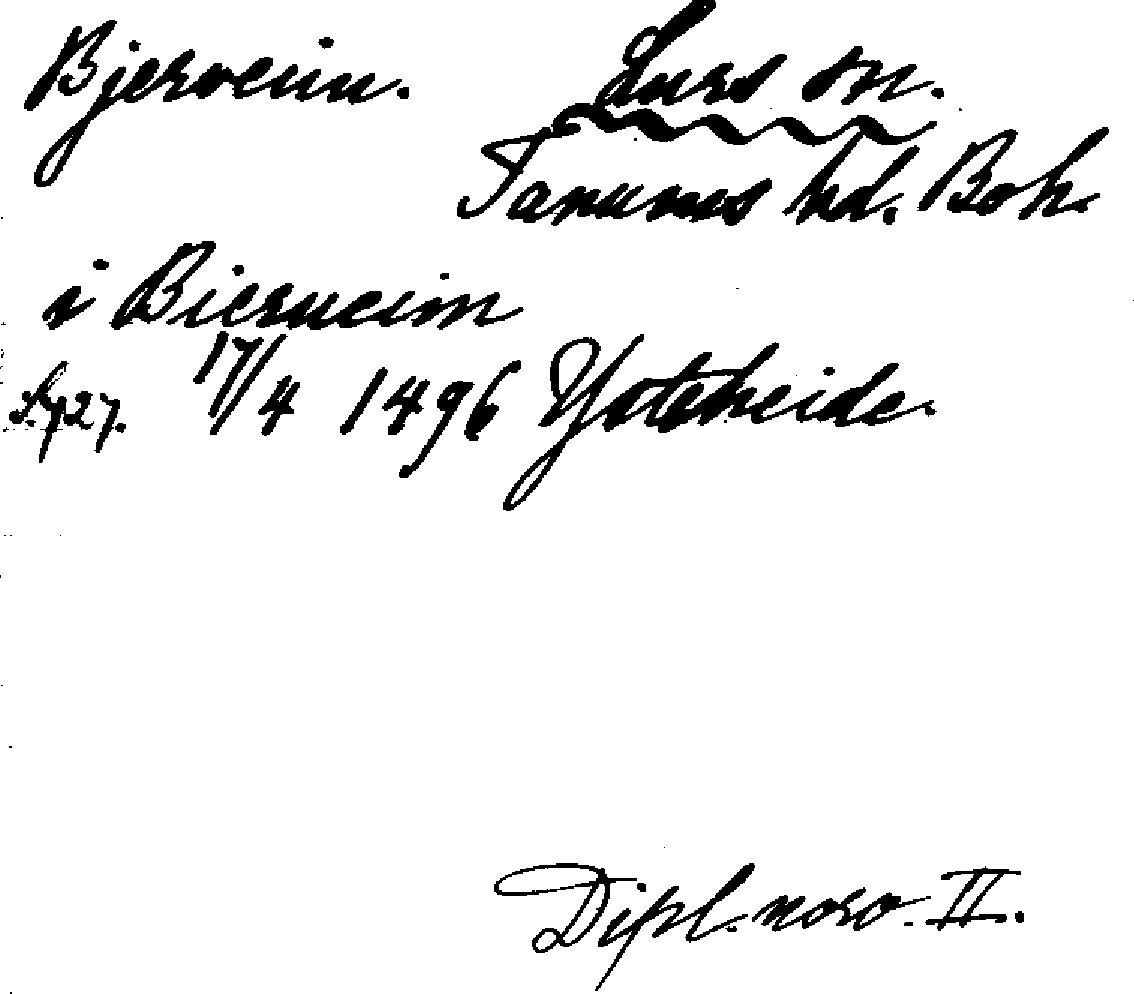 Bjerveim. Lurs sn.
Tanums hd. Boh.
i Bierueim
S. 727. 17/4 1496 Ydteheide.
Dipl. norv. II.